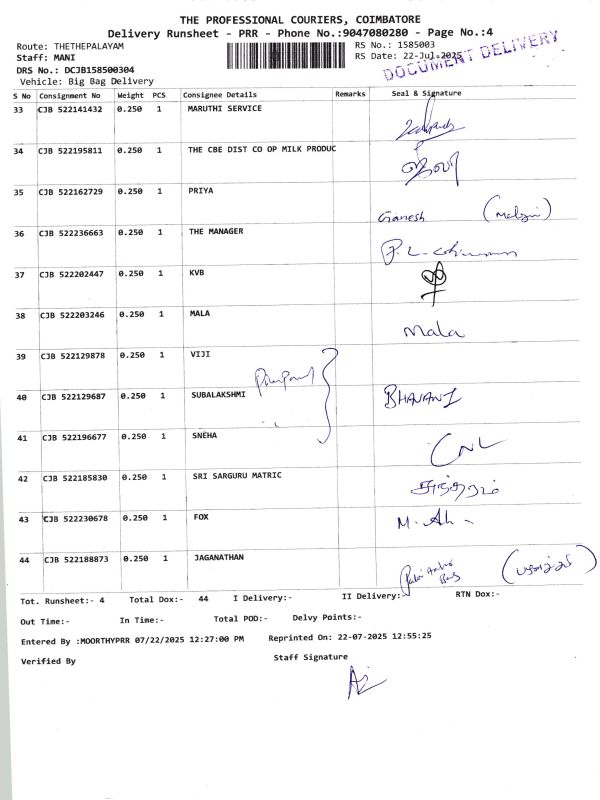 THE PROFESSIONAL COURIERS, COIMBATORE
Delivery Runsheet - PRR - Phone No.:9047080280 - Page No.:4
Route: THETHEPALAYAM RS No.: 1585003
Staff: MANI RS Date: 22-Jul-2025
DOCUMENT DELIVERY
DRS No.: DCJB158500304
Vehicle: Big Bag Delivery
S No Consignment No Weight PCS Consignee Details Remarks Seal & Signature
33 CJB 522141432 0.250 1 MARUTHI SERVICE
34 CJB 522195811 0.250 1 THE CBE DIST CO OP MILK PRODUC
35 CJB 522162729 0.250 1 PRIYA
Ganesh
36 CJB 522236663 0.250 1 THE MANAGER
37 CJB 522202447 0.250 1 KVB
38 CJB 522203246 0.250 1 MALA
Mala
39 CJB 522129878 0.250 1 VIJI
40 CJB 522129687 0.250 1 SUBALAKSHMI
BHAVANI
41 CJB 522196677 0.250 1 SNEHA
42 CJB 522185830 0.250 1 SRI SARGURU MATRIC
43 CJB 522230678 0.250 1 FOX
44 CJB 522188873 0.250 1 JAGANATHAN
Tot. Runsheet:- 4 Total Dox:- 44 I Delivery:- II Delivery:- RTN Dox:-
Out Time:- In Time:- Total POD:- Delvy Points:-
Entered By :MOORTHYPRR 07/22/2025 12:27:00 PM Reprinted On: 22-07-2025 12:55:25
Verified By Staff Signature